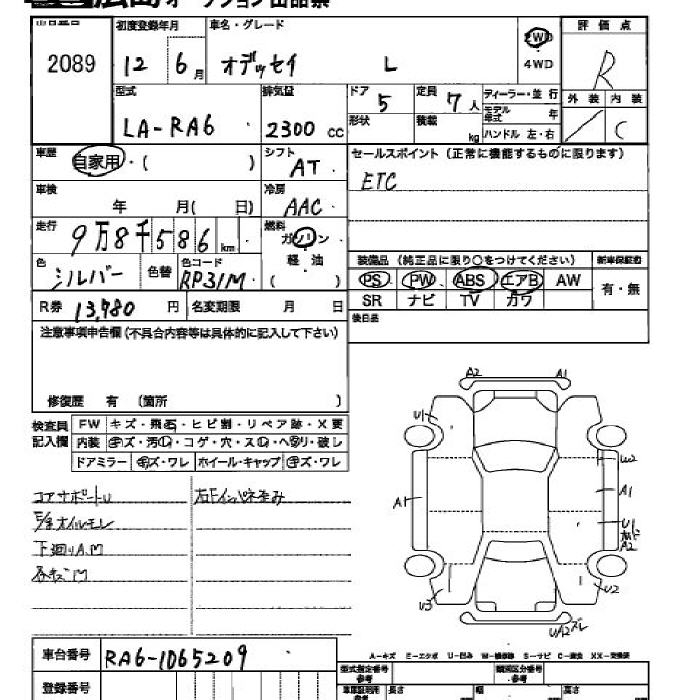 広島オークション出品票
出品番号 初度登録年月 車名・グレード 評価点
2089 12 6月 オデッセイ L 2WD 4WD R
型式 排気量 ドア 定員 ディーラー・並行 外装 内装
LA-RA6 2300 cc 5 7人 モデル年式 年 C
形状 積載 kg ハンドル 左・右
車歴 自家用・( ) シフト AT セールスポイント (正常に機能するものに限ります)
車検 年 月( 日) 冷房 AAC ETC
走行 9万8千586 km 燃料 ガソリン 軽油 ( )
装備品 (純正品に限り○をつけてください) 新車保証書
色 シルバー 色替 色コード RP31M
PS PW ABS エアB AW 有・無
SR ナビ TV カワ
R券 13,980 円 名変期限 月 日
後日品
注意事項申告欄(不具合内容等は具体的に記入して下さい)
修復歴 有 (箇所 )
検査員記入欄 FW キズ・飛石・ヒビ割・リペア跡・X要
内装 キズ・汚レ・コゲ・穴・スレ・ヘタリ・破レ
ドアミラー キズ・ワレ ホイール・キャップ キズ・ワレ
コアサポートU
オイルモレ
下廻りA.M
A2 A1
U1 U2
A1 A1
U1
A2
U3 U2
U12ズレ
A-キズ E-エクボ U-凹み W-補修跡 S-サビ C-腐食 XX-交換済
車台番号 RA6-1065209
登録番号
型式指定番号 参考 類別区分番号 参考
長さ 幅 高さ